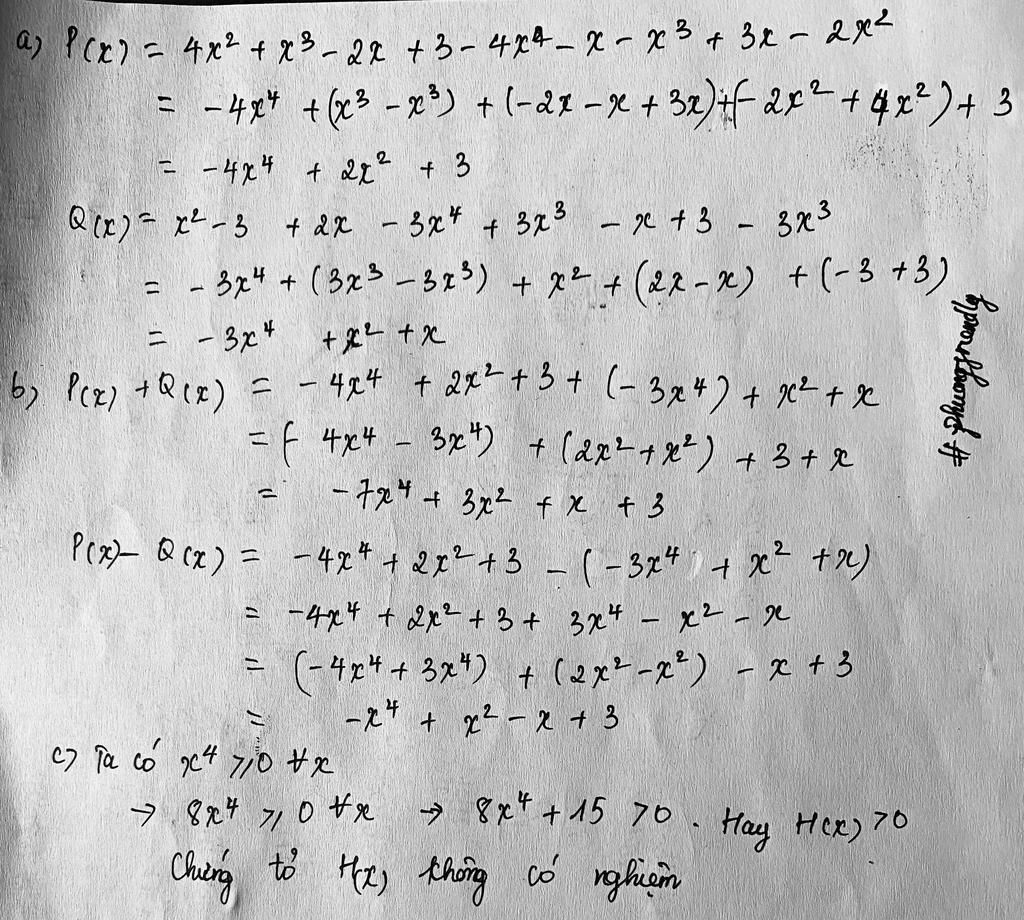 a) P(x) = 4x² + x³ - 2x + 3 - 4x⁴ - x - x³ + 3x - 2x²
= -4x⁴ + (x³ - x³) + (-2x - x + 3x) + (-2x² + 4x²) + 3
= -4x⁴ + 2x² + 3
Q(x) = x² - 3 + 2x - 3x⁴ + 3x³ - x + 3 - 3x³
= -3x⁴ + (3x³ - 3x³) + x² + (2x - x) + (-3 + 3)
= -3x⁴ + x² + x
b) P(x) + Q(x) = -4x⁴ + 2x² + 3 + (-3x⁴) + x² + x
= (-4x⁴ - 3x⁴) + (2x² + x²) + 3 + x
= -7x⁴ + 3x² + x + 3
P(x) - Q(x) = -4x⁴ + 2x² + 3 - (-3x⁴ + x² + x)
= -4x⁴ + 2x² + 3 + 3x⁴ - x² - x
= (-4x⁴ + 3x⁴) + (2x² - x²) - x + 3
= -x⁴ + x² - x + 3
c) Ta có x⁴ ⩾ 0 ∀x
→ 8x⁴ ⩾ 0 ∀x → 8x⁴ + 15 > 0. Hay H(x) > 0
Chứng tỏ H(x) không có nghiệm